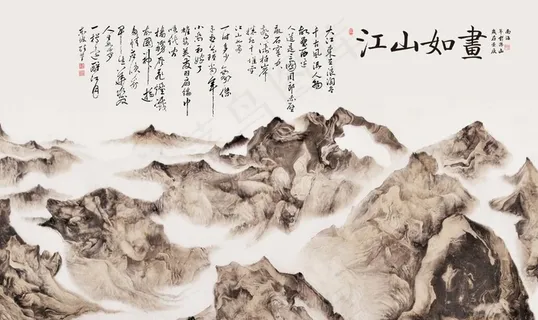 江山如畫
大江東去浪淘盡
千古風流人物
故壘西邊
人道是三國周郎赤壁
亂石穿空
驚濤拍岸
捲起千堆雪
江山如畫
一時多少豪傑
遙想公瑾當年
小喬初嫁了
雄姿英發羽扇綸巾
談笑間
檣櫓灰飛煙滅
故國神遊
多情應笑我
早生華髮
人生如夢
一樽還酹江月